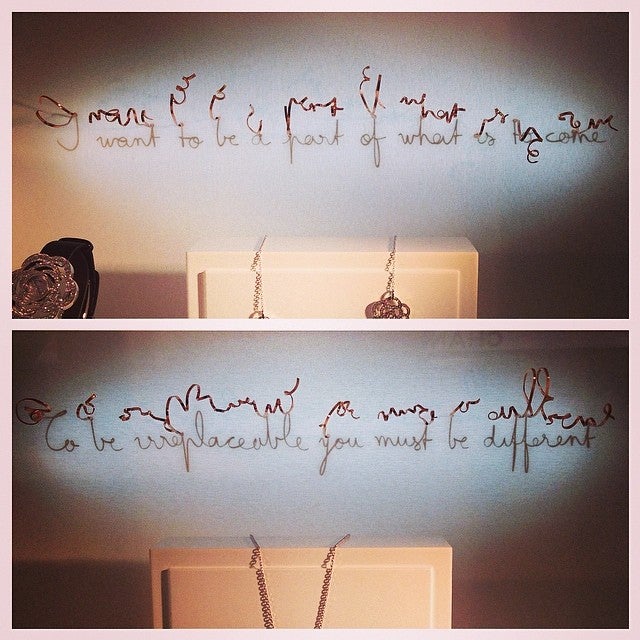 I want to be a part of what is to come
To be irreplaceable you must be different